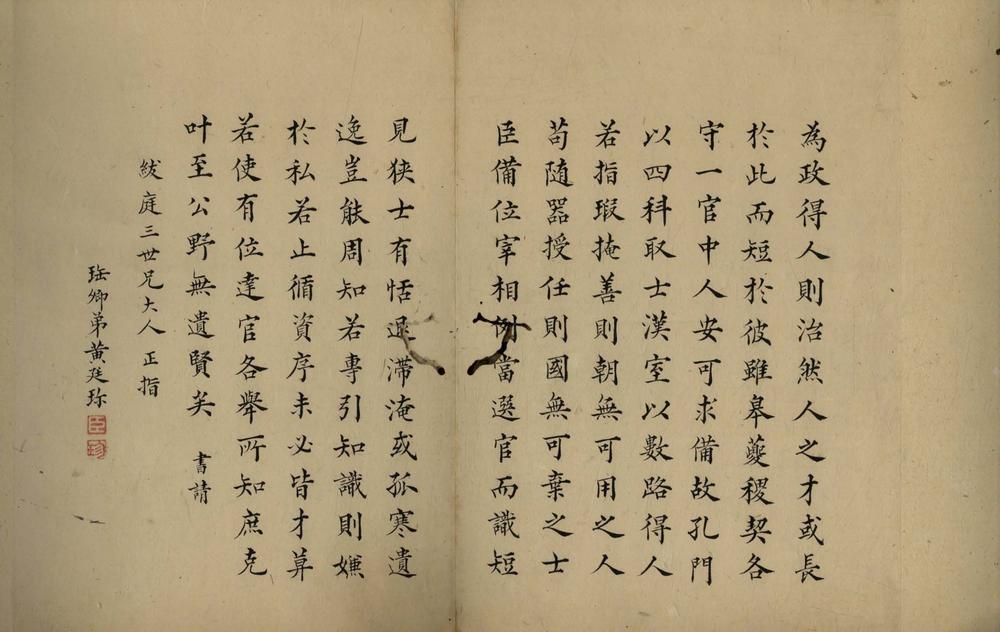 為政得人則治然人之才或長
於此而短於彼雖皋夔稷契各
守一官中人安可求備故孔門
以四科取士漢室以數路得人
若指瑕掩善則朝無可用之人
苟随器授任則國無可棄之士
臣備位宰相例當選官而識短
見狹士有恬退滯淹或孤寒遺
逸豈能周知若專引知識則嫌
於私若止循資序未必皆才莫
若使有位達官各舉所知庶克
叶至公野無遺賢矣 書請
紱庭三世兄大人 正指
弟黃廷珍
臣
珍